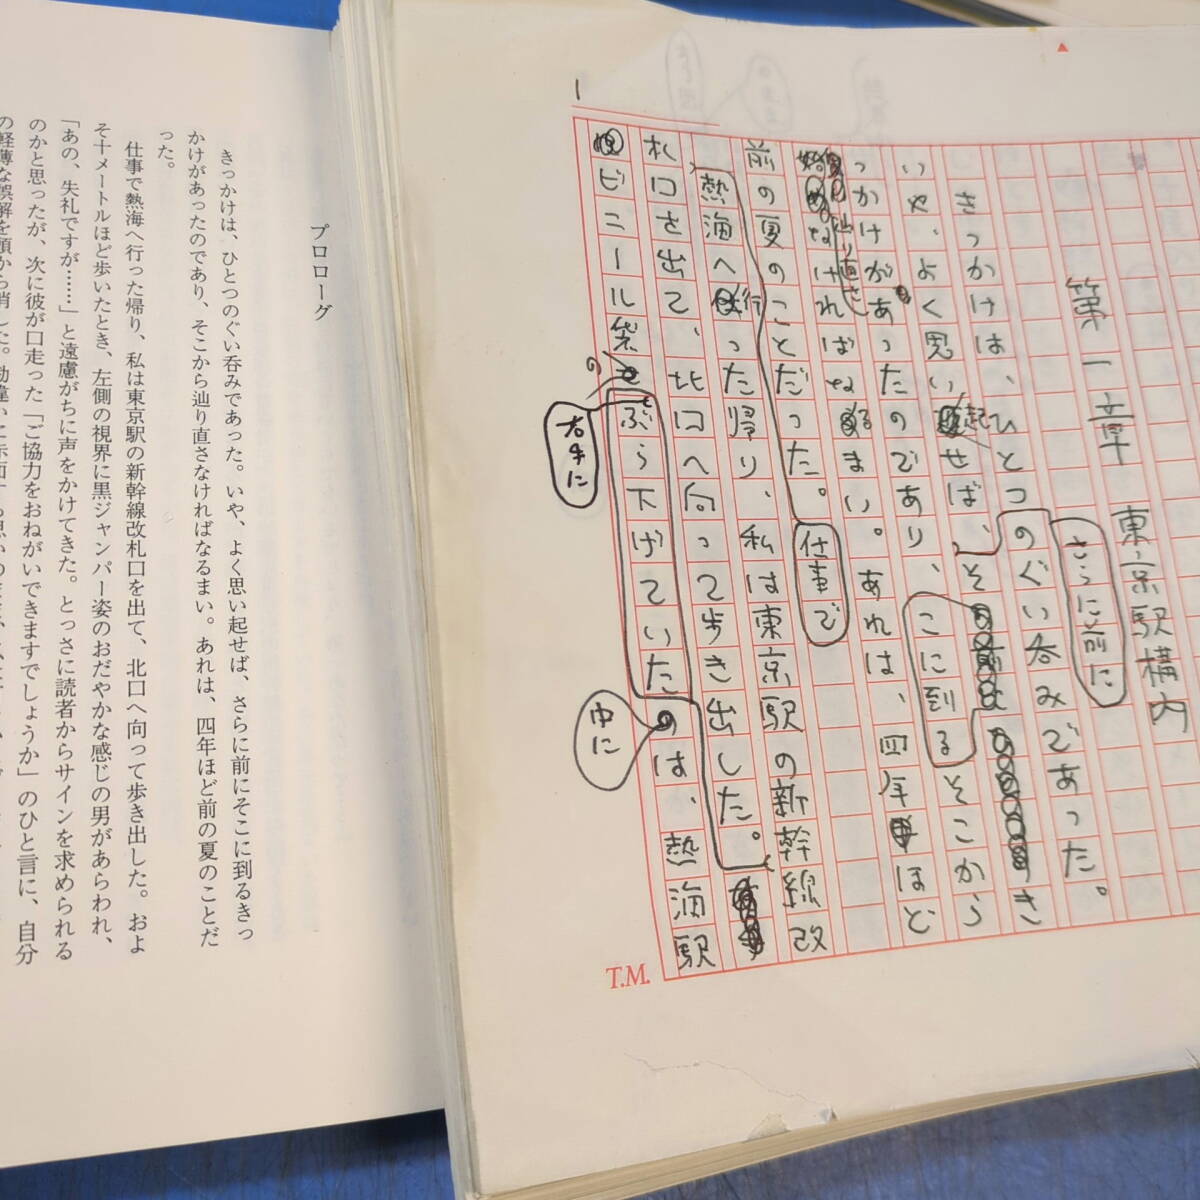 1
第一章 東京駅構内
きっかけは、ひとつのぐい呑みであった。
さらに前に
いや、よく思い起せば、そ き
こに到る
っかけがあったのであり、そこから
辿り直さ
なければなるまい。あれは、四年ほど
前の夏のことだった。
仕事で
熱海へ行った帰り、私は東京駅の新幹線改
札口を出て、北口へ向って歩き出した。
ビニール袋の ぶら下げていたのは、熱海駅
右手に
中に
T.M.
プロローグ
きっかけは、ひとつのぐい呑みであった。いや、よく思い起せば、さらに前にそこに到るきっ
かけがあったのであり、そこから辿り直さなければなるまい。あれは、四年ほど前の夏のことだ
った。
仕事で熱海へ行った帰り、私は東京駅の新幹線改札口を出て、北口へ向って歩き出した。およ
そ十メートルほど歩いたとき、左側の視界に黒ジャンパー姿のおだやかな感じの男があらわれ、
「あの、失礼ですが……」と遠慮がちに声をかけてきた。とっさに読者からサインを求められる
のかと思ったが、次に彼が口走った「ご協力をおねがいできますでしょうか」のひと言に、自分
の軽薄な誤解を頭から消した。